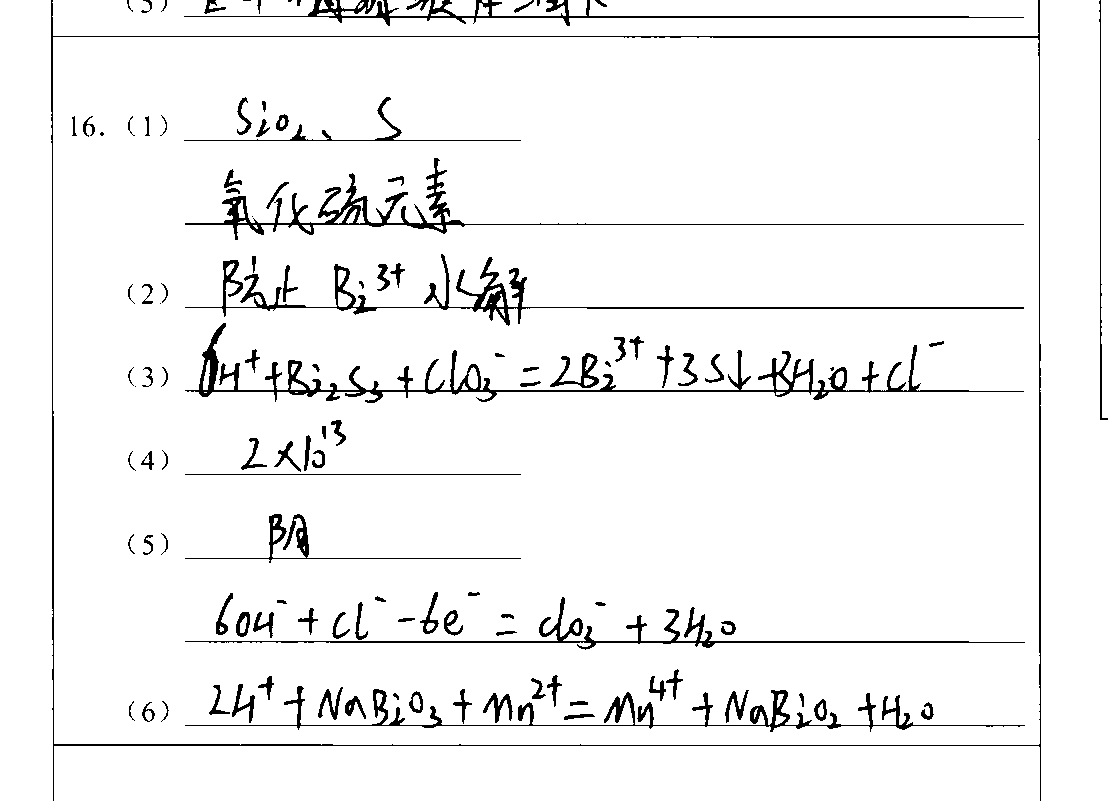 16. (1) SiO₂、S
氧化硫元素
(2) 防止 Bi³⁺ 水解
(3) 6H⁺+Bi₂S₃+ClO₃⁻=2Bi³⁺+3S↓+3H₂O+Cl⁻
(4) 2×10¹³
(5) 阴
6OH⁻+Cl⁻-6e⁻=ClO₃⁻+3H₂O
(6) 2H⁺+NaBiO₃+Mn²⁺=Mn⁴⁺+NaBiO₂+H₂O